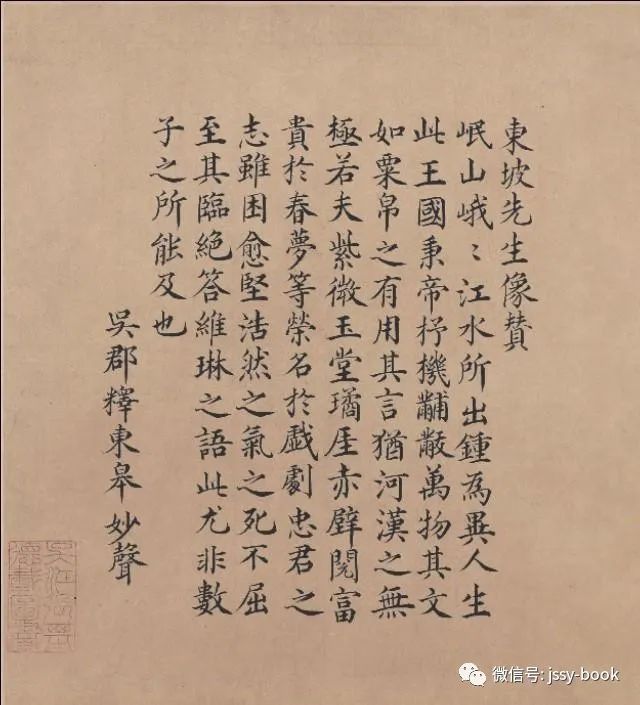 東坡先生像贊
岷山峨〻江水所出鍾為異人生
此王國秉帝杼機黼黻萬物其文
如粟帛之有用其言猶河漢之無
極若夫紫微玉堂瓊厓赤壁閱富
貴於春夢等榮名於戲劇忠君之
志雖困愈堅浩然之氣之死不屈
至其臨絕答維琳之語此尤非數
子之所能及也
吳郡釋東皋妙聲
微信号: jssy-book